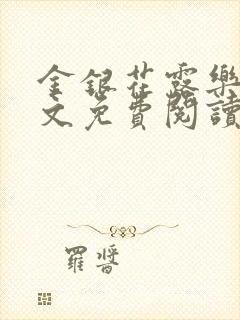 金銀花露樂
文免費閱讀
羅晉